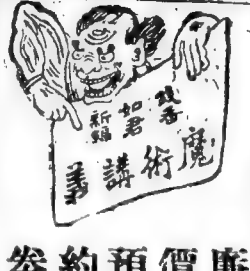 錢香
如君
新編
魔術講義
廉價預約券